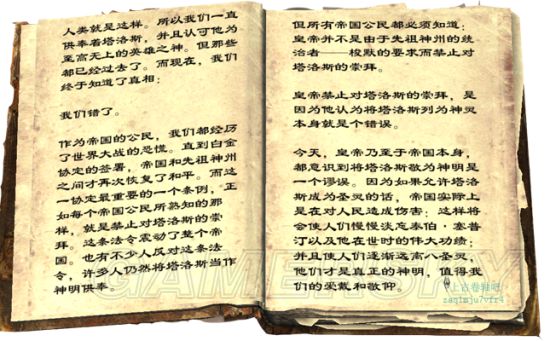 人类就是这样。所以我们一直
供奉着塔洛斯，并且认可他为
至高无上的英雄之神。但那些
都已经过去了。而现在，我们
终于知道了真相：
我们错了。
作为帝国的公民，我们都经历
了世界大战的恐慌。直到白金
协定的签署，帝国和先祖神州
之间才再次恢复了和平。而这
一协定最重要的一个条例，正
如每个帝国公民所熟知的那
样，就是禁止对塔洛斯的崇
拜。这条法令震动了整个帝
国。也有不少人反对这条法
令，许多人仍然将塔洛斯当作
神明供奉。
但所有帝国公民都必须知道：
皇帝并不是由于先祖神州的统
治者——梭默的要求而禁止对
塔洛斯的崇拜。
皇帝禁止对塔洛斯的崇拜，是
因为他认为将塔洛斯列为神灵
本身就是个错误。
今天，皇帝乃至于帝国本身，
都意识到将塔洛斯敬为神明是
一个谬误。因为如果允许塔洛
斯成为圣灵的话，帝国实际上
是在对人民造成伤害：这样将
会使人们慢慢淡忘泰伯·塞普
汀以及他在世时的伟大功绩；
并且使人们逐渐远离八圣灵，
他们才是真正的神明，值得我
们的爱戴和敬仰。
上古卷轴吧
zaq1mju7vfr4
GAMERSKY